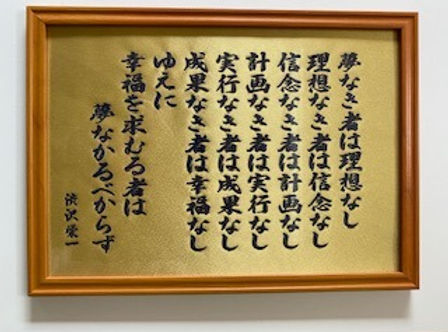 夢なき者は理想なし
理想なき者は信念なし
信念なき者は計画なし
計画なき者は実行なし
実行なき者は成果なし
成果なき者は幸福なし
ゆえに
幸福を求むる者は
夢なかるべからず
渋沢栄一